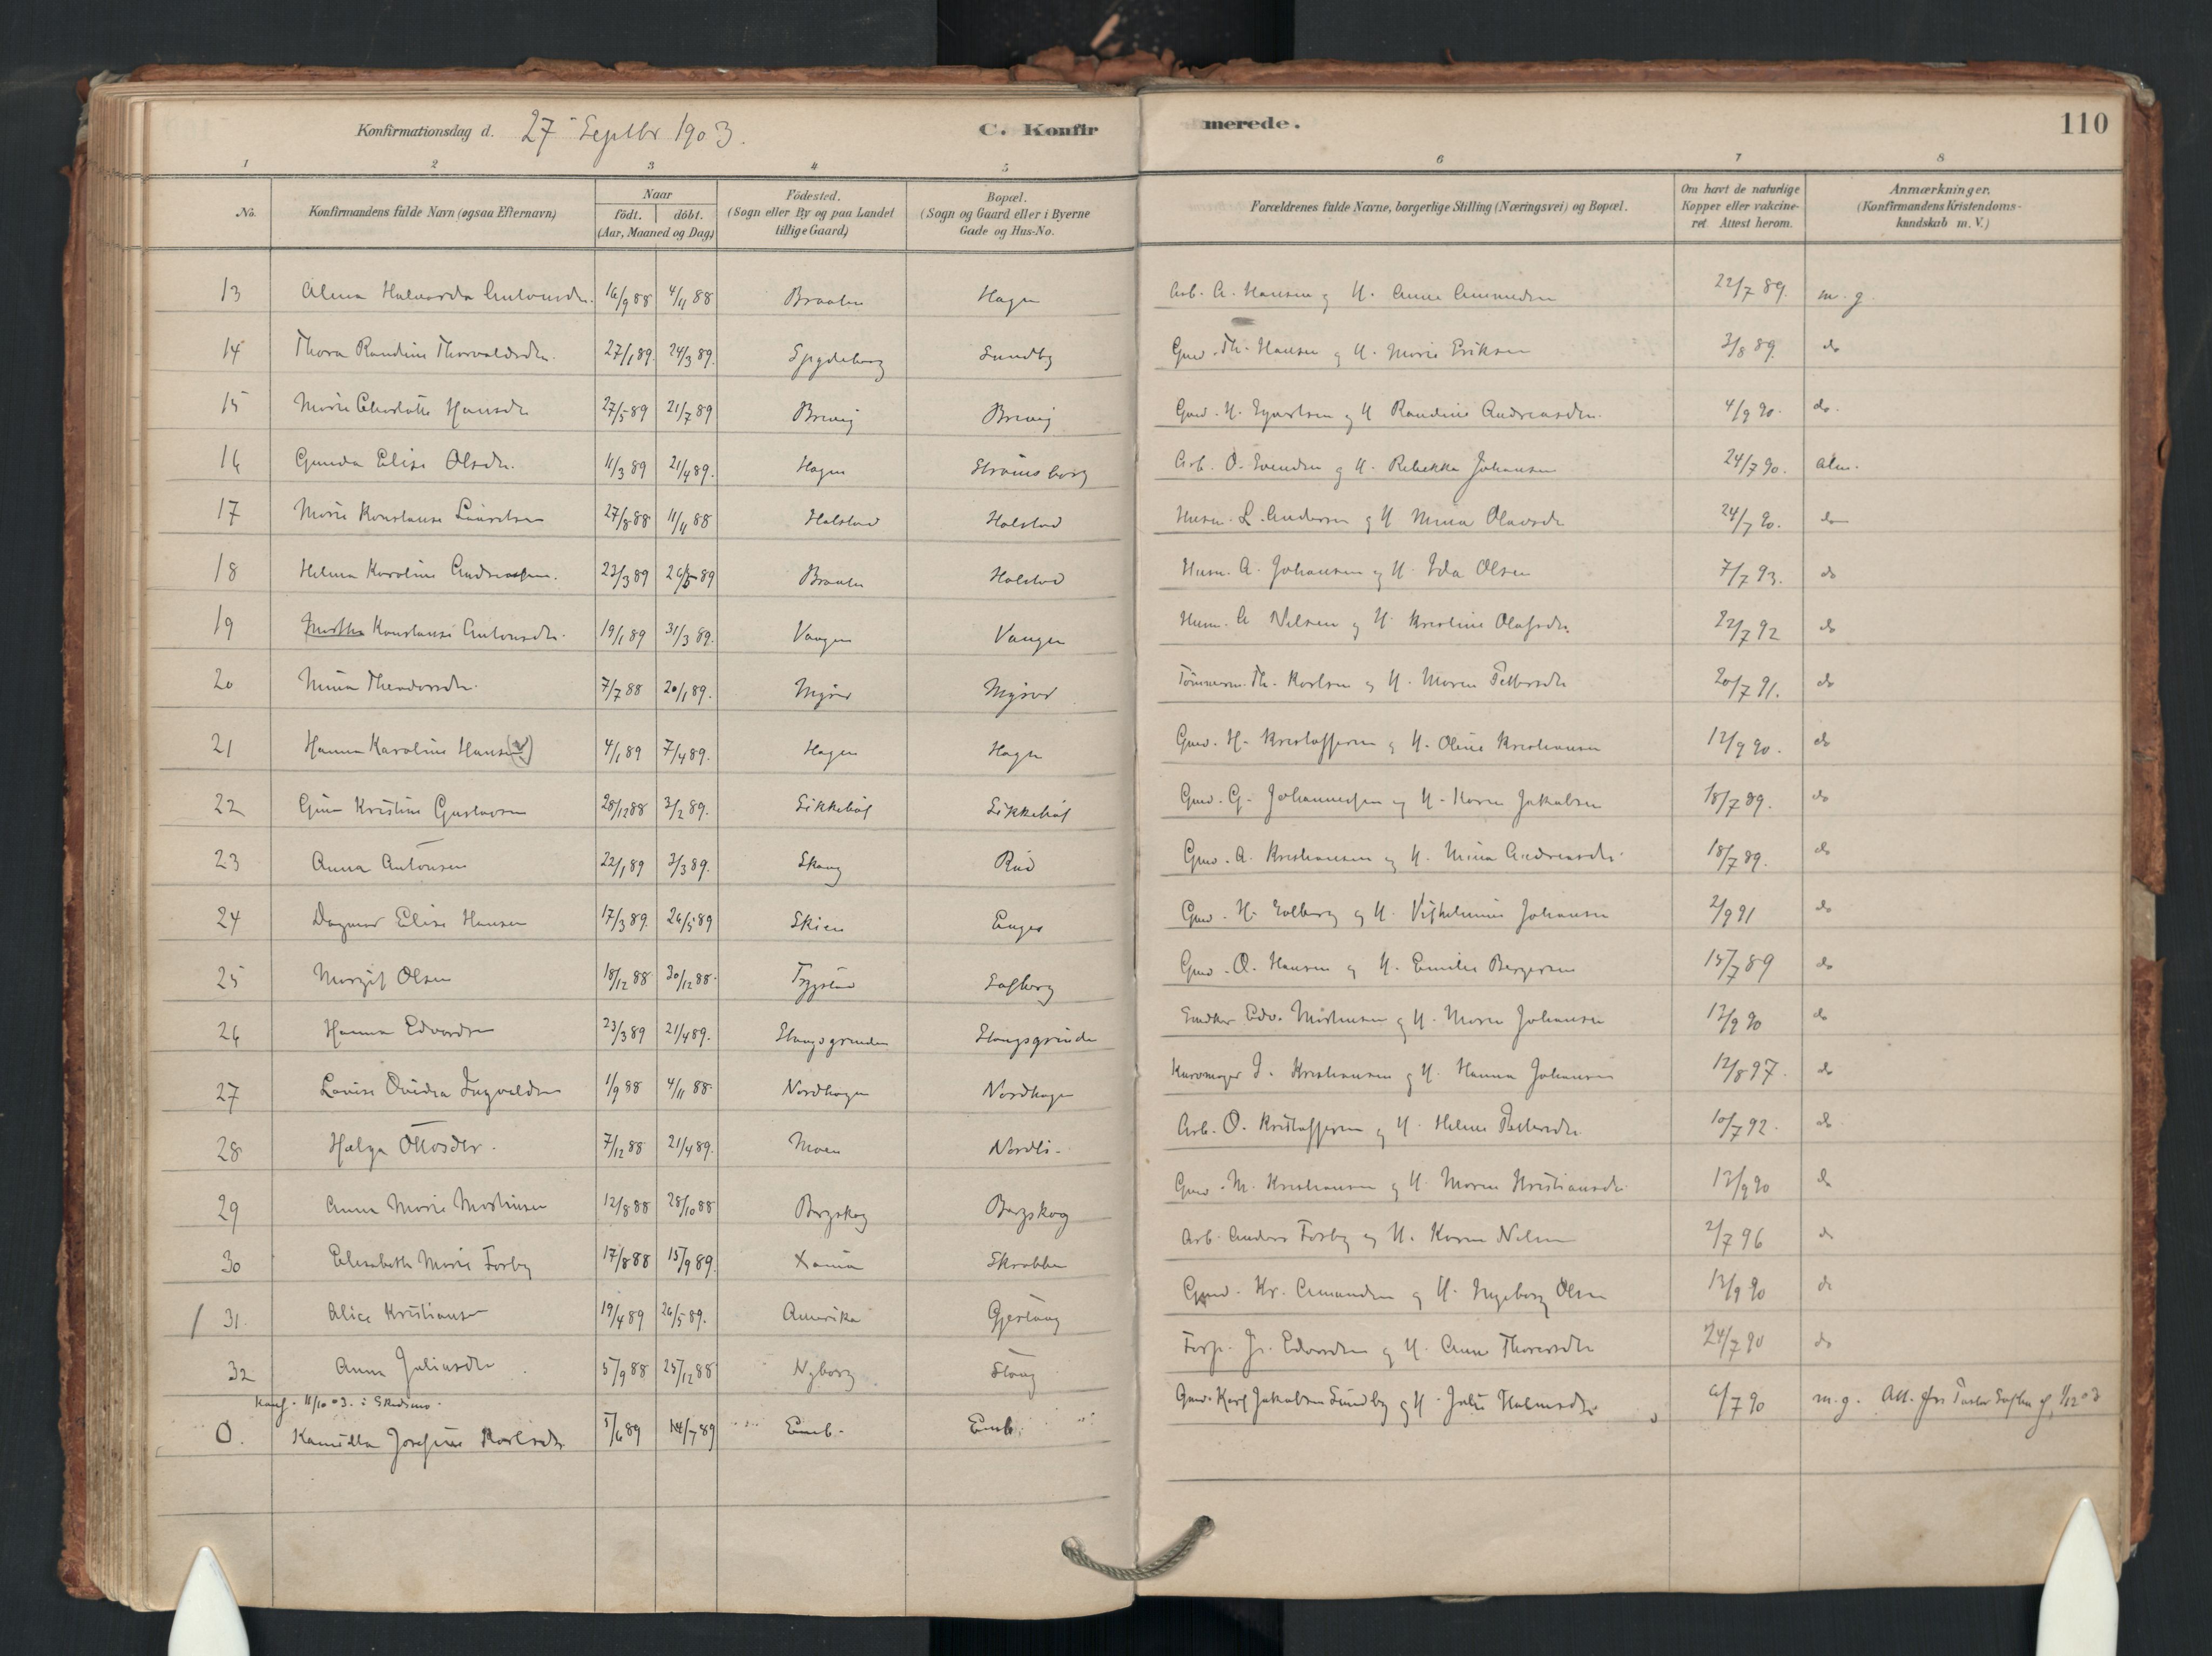 Konfirmationsdag d. 27 Septbr 1903.
C. Konfirmerede.
110
1 2 3 4 5 6 7 8
No.
Konfirmandens fulde Navn (ogsaa Efternavn)
Naar
födt. döbt.
(Aar, Maaned og Dag)
Födested.
(Sogn eller By og paa Landet
tillige Gaard)
Bopæl.
(Sogn og Gaard eller i Byerne
Gade og Hus-No.
Forældrenes fulde Navne, borgerlige Stilling (Næringsvei) og Bopæl.
Om havt de naturlige
Kopper eller vakcine-
ret. Attest herom.
Anmærkninger.
(Konfirmandens Kristendoms-
kundskab m. V.)
13 16/9 88 4/11 88 Braaten Hagen Arb. A. Hansen og H. 22/7 89. m. g.
14 Thora Randine Thorvaldsdtr. 27/1 89. 24/3 89. Spydeberg Sundby Gmd. Th. Hansen og H. Marie Eriksen 3/8 89. do
15 Marie Charlotte Hansdtr 27/5 89 21/7 89 Brevig Brevig Gmd. H. og H. Randine Andreasdtr. 4/9 90. do.
16 Gunda Elise Olsdtr. 11/3 89 21/4 89. Hagen Strømsborg Arb. O. Svendsen og H. Rebekka Johansen 24/7 90. alm.
17 Marie Konstanse Lauritsen 27/8 88 11/11 88 Halstad Halstad Husm. L. Andersen og H. Mina Olavsdtr 24/7 90. do
18 Helma Karoline Andreassen. 23/3 89 26/5 89 Braaten Halstad Husm. A. Johansen og H. Ida Olsen 7/7 93. do
19 Martha Konstanse Antonsdtr. 19/1 89 31/3 89. Vangen Vangen Husm. A Nilsen og H. Kristine Olafsdtr. 22/7 92 do
20 Mina Theodorsdtr. 7/7 88 20/1 89. Mysen Mysen Tømmerm. Th. Karlsen og H. Maren Pettersdtr 20/7 91. do
21 Hanna Karoline Hansen 4/1 89 7/4 89. Hagen Hagen Gmd. H. Kristoffersen og H. Oline Kristiansen 12/9 90. do
22 Kristine Gustavsen 28/12 88 3/2 89. Sikkebøl Sikkebøl Gmd. G. Johannessen og H. Karen Jakobsen 18/7 89. do
23 Anna Antonsen 22/1 89 3/3 89. Skaug Rud Gmd. A. Kristiansen og H. Mina Andreasdtr. 18/7 89. do
24 Dagmar Elise Hansen 17/3 89. 26/5 89 Skien Enger Gmd. H. Solberg og H. Vilhelmine Johansen 2/9 91 do
25 Margit Olsen 18/12 88 30/12 88. Trygstad Sagberg Gmd. O. Hansen og H. Emilie Bergersen 15/7 89 do
26 Hanna Edvardsen 23/3 89 21/4 89. Stangsgrinden Stangsgrinden Edv. Mathisen og H. Maren Johansen 12/9 90 do
27 Lovise Ovidia Ingvaldsen 1/9 88 4/11 88. Nordhagen Nordhagen Kurvmager I. Kristiansen og H. Hanna Johansen 12/8 97. do
28 Helga Ottosdtr. 7/12 88 21/4 89. Moen Nordli. Arb. O. Kristoffersen og H. Helene Pettersdtr. 10/7 92. do
29 Anna Marie Mathisen 12/8 88 28/10 88 Bergskog Bergskog Gmd. M. Kristiansen og H. Maren Kristiansdtr. 12/9 90 do
30 Elisabeth Marie Forby 17/8 88 15/9 89. Xania Skrabben Arb. Anders Forby og H. Karen Nilsen 2/7 96 do
31. Alice Kristiansen 19/4 89 26/5 89. Amerika Gjeslaug Gmd. Kr. Amundsen og H. Ingeborg Olsen 12/9 90 do
32 Anna Juliusdtr 5/9 88 25/12 88 Nyborg Stang Forp. J. Edvardsen og H. Anne Thoresdtr 24/7 90 do
Konf. 11/10 03. i Skedsmo.
O. Kamilla Josefine Karlsdtr 5/6 89 14/7 89 Emb. Emb. Gmd. Karl Jakobsen Sundby og H. Julie Halmsdtr. 6/7 90 m. g. Att. fra Pastor 1/12 03